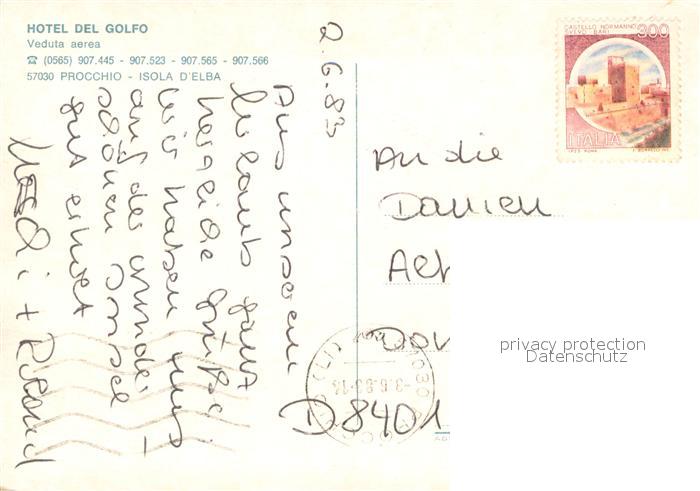 HOTEL DEL GOLFO
Veduta aerea
☎ (0565) 907.445 - 907.523 - 907.565 - 907.566
57030 PROCCHIO - ISOLA D'ELBA
2.6.83
Aus unserem
Urlaub ganz
herzliche Grüße
wir haben uns
auf der
schönen Insel
gut erholt
+ Roland
CASTELLO NORMANNO
SVEVO BARI
300
ITALIA
I.P.Z.S. ROMA
An die
Damen
Dov
D 8401
-3.6.83-
privacy protection
Datenschutz